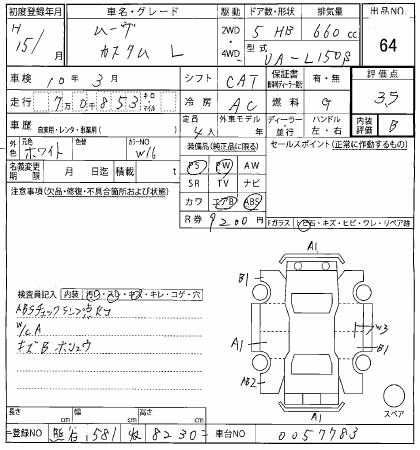 初度登録年月 車名・グレード 駆動 ドア数・形状 排気量 出品NO
H 15/ 月 ムーヴ カスタム L 2WD・4WD 5 HB 660 cc 64
型式 UA-L150S
車検 10年3月 シフト CAT 保証書 有・無 評価点
走行 7万0千853 キロ・マイル 冷房 AC 燃料 35
車歴 自家用・レンタ・事業用( ) 定員 4人 外車モデル 年 ディーラー・並行 ハンドル 左・右 内装評価 B
外色 元色 ホワイト 色替 カラーNO W16 装備品(純正品に限る) セールスポイント(正常に動作するもの)
名義変更期限 月 日迄 積載 t PS PW AW
注意事項(欠品・修復・不具合箇所および状態) SR TV ナビ
カワ エアB ABS
R券 9200円 Fガラス 飛石・キズ・ヒビ・ワレ・リペア跡
A1
B1
検査員記入 内装 汚・スレ・キズ・キレ・コゲ・穴
ABSチェックランプ点灯
W/C A
キズBホシュウ
A1 W3 B1
AB2
A1
スペア
長さ cm 幅 cm 高さ cm
登録NO 熊谷 581 8230 車台NO 0057783